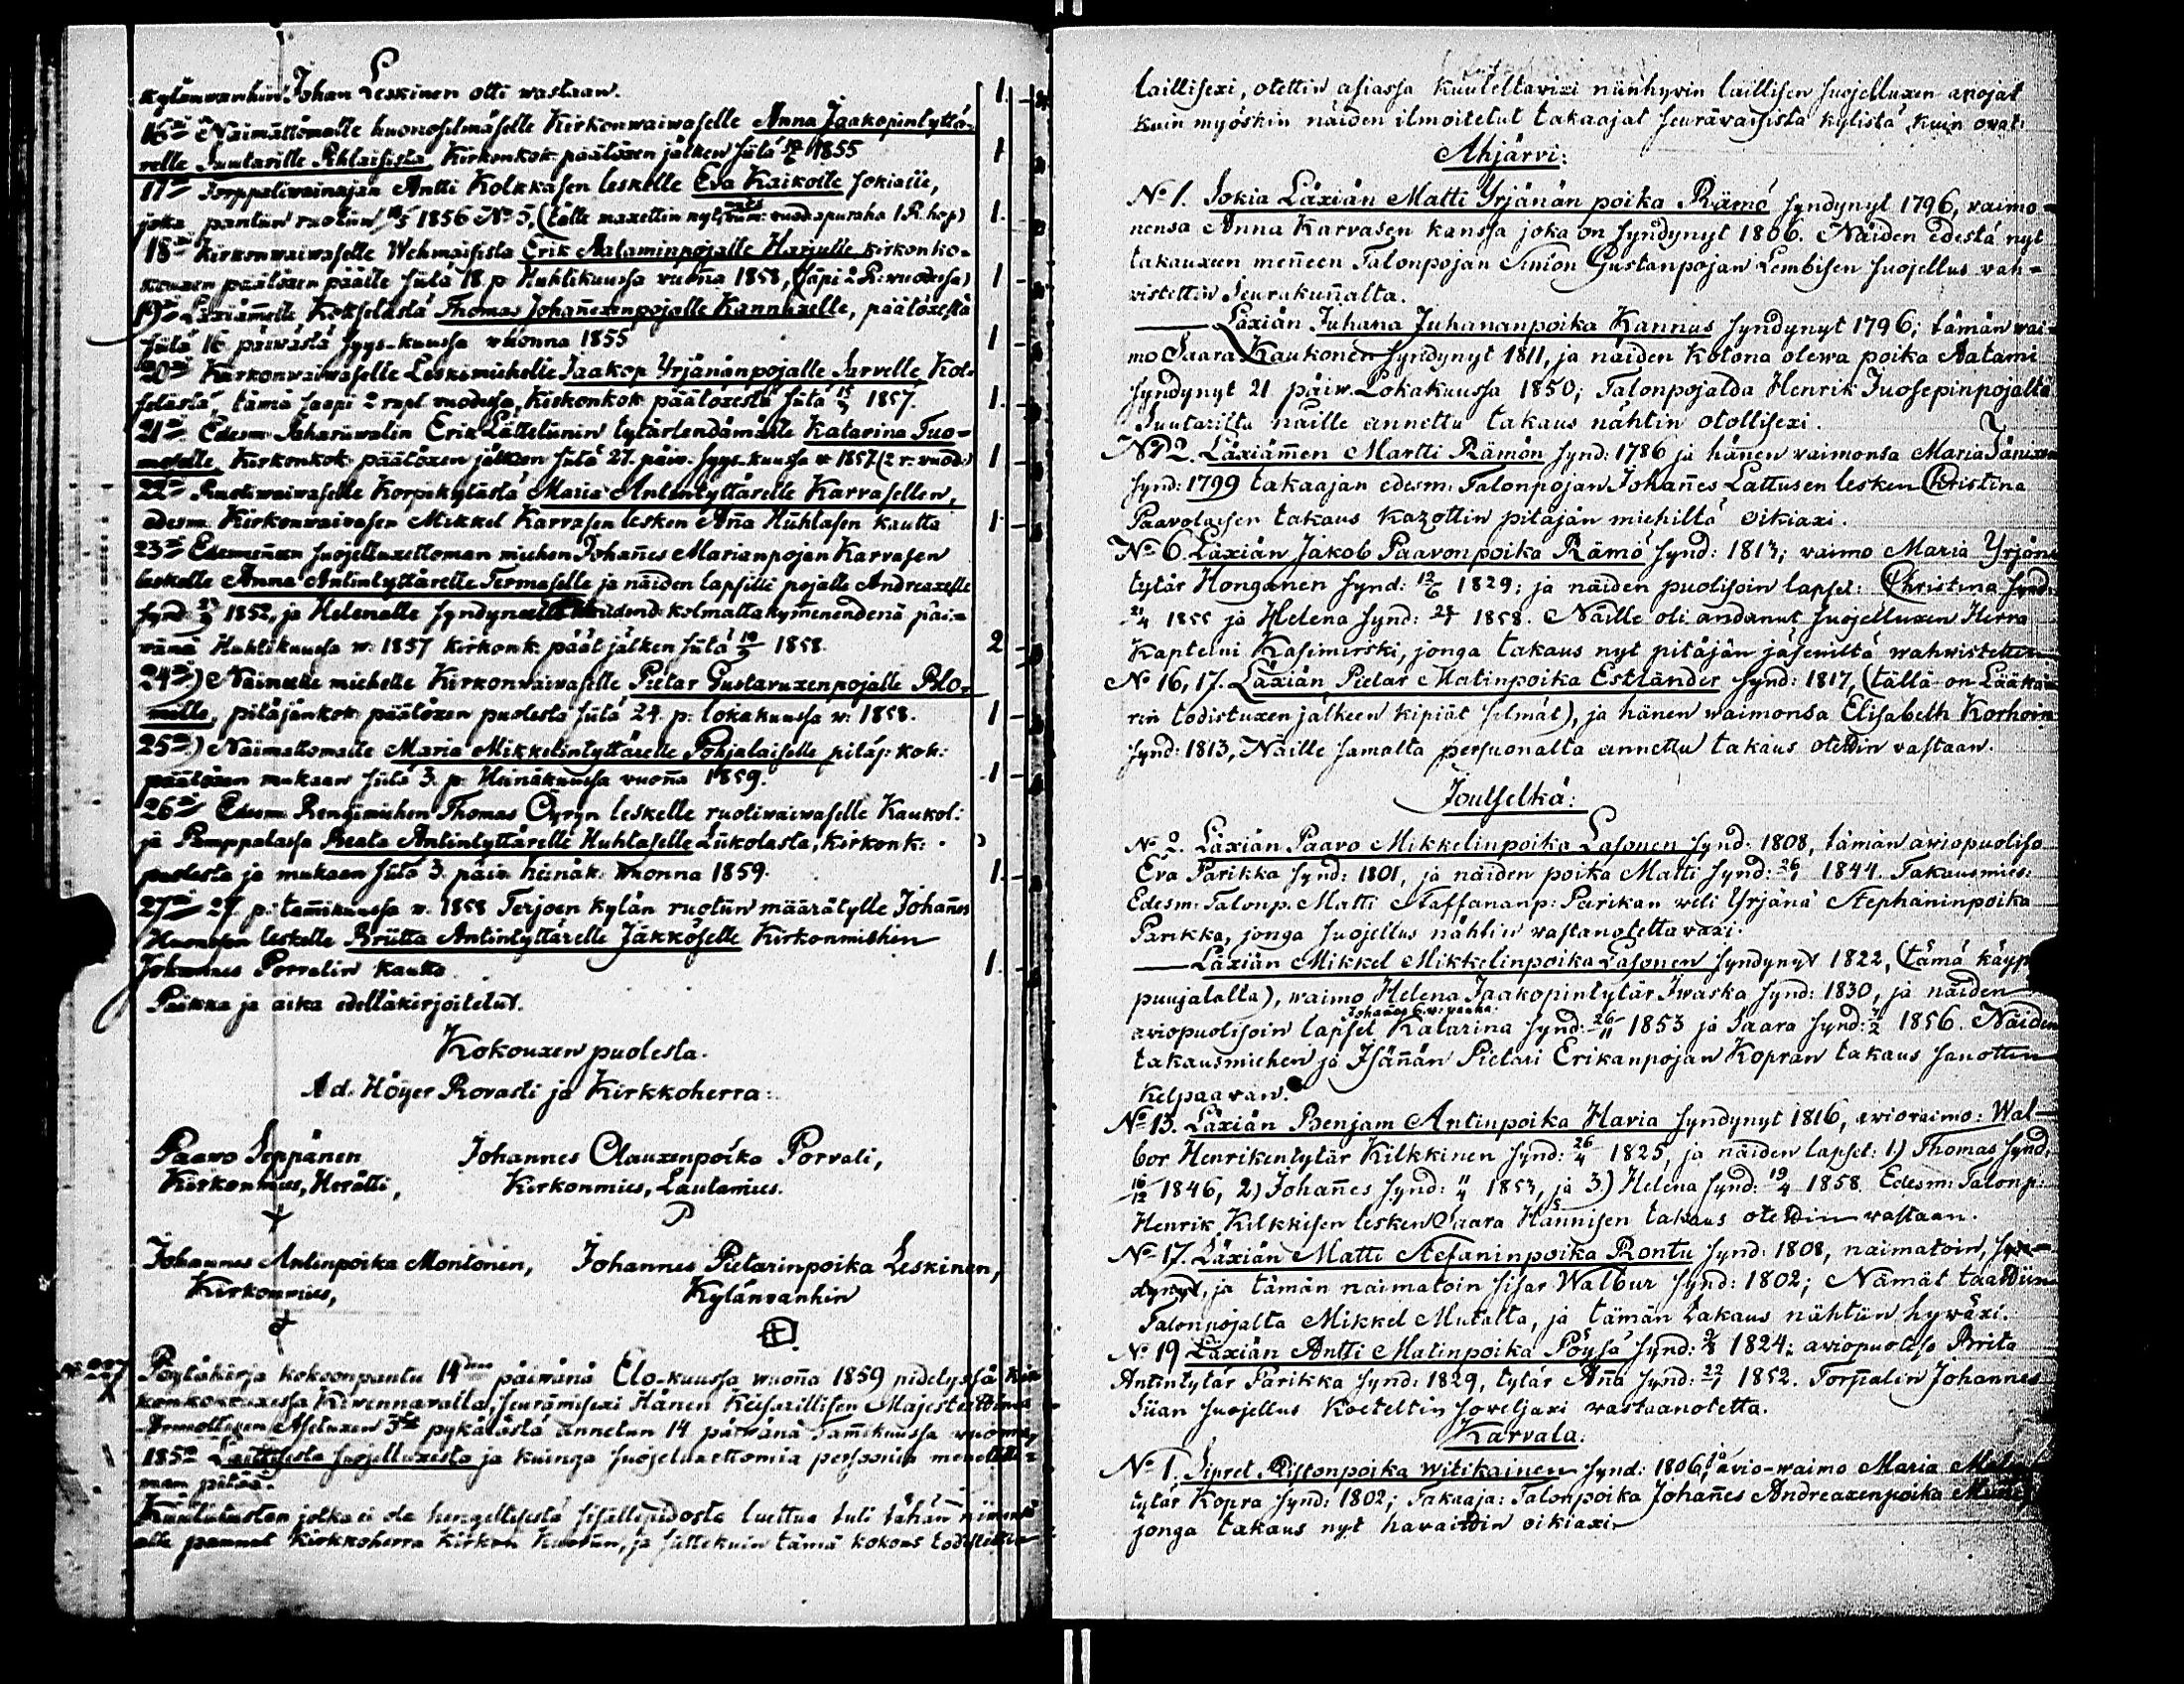 kylänwanhin Johan Leskinen otti wastaan. 1.
16:xi Naimattomalle huonosilmäselle Kirkonwaiwaselle Anna Jaakopintyttä-
relle Suutarille Pihlaisista, Kirkonkok. päätöxen jälken siitä 1855 1
17:xi Torppaliwainajan Antti Kolkkasen leskelle Eva Kaikolle
joka pantiin ruotiin 1856 No 5, (tälle maxettin nyt ruodapuraha 1 R. hop) 1.
18:xi Kirkonwaiwaselle Wehmaisista Erik Aataminpojalle Harjulle kirkonko-
kouxen päätöxen päälle siitä 18 p Huhtikuussa vuonna 1858, (saapi 2 R: vuodessa) 1
19:xi Läxiämelle Kottselästä Thomas Johanexenpojalle Kannuxelle, päätöxestä
siitä 16 päiwästä Syys-kuussa vuonna 1855 1
20:xi Kirkonwaiwaselle Leskimiehelle Jaakop Yrjänänpojalle Sarvelle Kot-
selästä, tämä saapi 2 rupl vuodessa, Kirkonkok päätöxestä siitä 15/3 1857. 1.
21:xi Edesm. Itharuwalin Erik Lättelinin tytärlendämälle Katarina Tuo-
moselle Kirkonkok päätöxen jälken siitä 27. päiw. Syys-kuussa w 1857 (2 r. vuod:) 1
22:xi Ruotiwaiwaselle Korpikylästä Maria Antintyttärelle Karvasellen,
edesm. Kirkonwaivasen Mikkel Karvasen lesken Aña Huhtasen kautta 1
23:xi Edesmeneen suojelluxettoman miehen Johañes Marianpojan Karvasen
leskelle Anna Antintyttärelle Termaselle ja näiden lapsille pojalle Andreaxelle
synd: 1852, ja Helenalle syndyneelle kolmattakymmenendenä päi-
vänä Huhtikuussa w. 1857 kirkonk. päät. jälken siitä 1858. 2
24:xi) Naineelle miehelle Kirkonwaiwaselle Pietar Gustavuxenpojalle Blo-
mille, pitäjänkok päätöxen puolesta siitä 24. p. lokakuussa w. 1858. 1
25:xi) Naimattomalle Maria Mikkelintyttärelle Pohjalaiselle pitäj: kok:
päätöxen mukaan siitä 3. p. Heinäkuussa vuoña 1859. 1
26:xi Edesm. Rengimiehen Thomas Öyryn leskelle ruotiwaiwaselle Kaukol:
ja Pamppalassa Beata Antintyttärelle Huhtaselle Liikolasta, Kirkonk:
puolesta ja mukaan siitä 3. päiv. heinäk. wuonna 1859. 1.
27:xi 27. p. tamikuussa w. 1858 Terjoen kylän ruotiin määrätylle Johañes
Huonosen leskelle Briitta Antintyttärelle Jäkköselle Kirkonmiehen
Johannes Porvalin kautta 1.
Paikka ja aika edelläkirjoitetut.
Kokouxen puolesta.
Ad. Höyer Rovasti ja Kirkkoherra:
Paawo Seppänen Johannes Olauxenpoika Porvali,
Kirkonmies, Herätti, Kirkonmies, Lautamies.
Johannes Antinpoika Montonen, Johannes Pietarinpoika Leskinen,
Kirkonmies, Kylänvanhin
Pöytäkirja kokoonpantu 14 päiwänä Elo-kuussa wuoña 1859 pidetyssä kir-
konkokouxessa Kivennavalla, Seurämisexi Hänen Keisarillisen Majesteettinsa
Armollisen Asetuxen 3 pykälästä annetun 14 päiwänä Tammikuussa vuonna
1852 Laillisesta suojelluxesta ja kuinga suojeluxettomia personia menettele-
män pitää.
Kuulutusten jotka ei ole hengellisestä sisällepidosta luettua tuli tähän nimensä
alle pannut Kirkkoherra Kirkon kuoriin, ja sittekuin tämä kokous todistettin
laillisexi, otettin asiassa kuuleltavixi niinhyvin laillisen suojelluxen anojat
kuin myöskin näiden ilmoitetut takaajat seurävaisista kylistä, kuin ovat:
Ahjärvi:
No 1. Sokia Läxiän Matti Yrjänän poika Rämö syndynyt 1796, vaimo-
nensa Anna Karvasen kanssa joka on syndynyt 1806. Näiden edestä nyt
takauxeen meñeen Talonpojan Simon Gustanpojan Lembisen suojellus vah-
vistettin Seurakuñalta.
— Läxiän Juhana Juhananpoika Kannus syndynyt 1796; tämän vai-
mo Saara Kaukonen syndynyt 1811, ja näiden kotona olewa poika Aatami
syndynyt 21 päiw. Lokakuussa 1850; Talonpojalda Henrik Juosepinpojalta
Suutarilta näille annettu takaus nähtin otollisexi.
No 2. Läxiämen Martti Rämön synd: 1786 ja hänen vaimonsa Maria Jänixen
synd: 1799 takaajan edesm. Talonpojan Johañes Lattusen lesken Christina
Paavolaisen takaus kazottin pitäjän miehiltä oikiaxi.
No 6. Läxiän Jakob Paavonpoika Rämö synd: 1813; vaimo Maria Yrjänä
tytär Honganen synd: 12/6 1829; ja näiden puolisoin lapset: Christina synd:
21/4 1855 ja Helena synd: 1858. Näille oli andanut suojelluxen Herra
Kapteini Kasimirski, jonga takaus nyt pitäjän jäseniltä wahwistettin
No 16, 17. Läxiän Pietar Matinpoika Estländer synd: 1817, (tällä on Lääkä-
rin todistuxen jälkeen kipiät silmät), ja hänen waimonsa Elisabeth Korhoin
synd: 1813, Näille samalta persuonalta annettu takaus otettin vastaan.
Joutselkä:
No 2. Läxiän Paavo Mikkelinpoika Lasonen synd: 1808, tämän aviopuoliso
Eva Parikka synd: 1801, ja näiden poika Matti synd: 1844. Takausmies:
Edesm: Talonp. Matti Staffananp: Parikan veli Yrjänä Stephaninpoika
Parikka, jonga suojellus nähtiin vastanotettavaxi.
— Läxiän Mikkel Mikkelinpoika Lasonen syndynyt 1822, (tämä käypi
puujalalla), waimo Helena Jaakopintytär Iwaska synd: 1830, ja näiden
Johañes 6. w. vanha.
aviopuolisoin lapset Katarina synd: 26/11 1853 ja Saara synd: 1856. Näiden
takausmiehen jo Isäñän Pietari Erikanpojan Kopran takaus sanottin
kelpaavan.
No 13. Läxiän Benjam Antinpoika Havia syndynyt 1816, aviovaimo: Wal-
bor Henrikentytär Kilkkinen synd: 26/4 1825, ja näiden lapset: 1) Thomas synd.
16/12 1846, 2) Johañes synd: 11/4 1853, ja 3.) Helena synd: 19/4 1858. Edesm: Talonp:
Henrik Kilkkisen lesken Saara Hännisen takaus otettin vastaan.
No 17. Läxiän Matti Stefaninpoika Rontu synd: 1808, naimatoin, syn-
dynyt, ja tämän naimatoin sisar Walbur synd: 1802; Nämät taattiin
Talonpojalta Mikkel Mutalta, ja tämän takaus nähtiin hywäxi.
No 19 Läxiän Antti Matinpoika Pöysä synd: 1824; aviopuoliso Brita
Antintytär Parikka synd: 1829, tytär Aña synd: 22/1 1852. Torpalin Johannes
Siian suojellus koeteltin soveljaxi vastaanotetta.
Karvala:
No 1. Sipret Ristonpoika Witikainen synd: 1806, ja avio-waimo Maria
tytär Kopra synd: 1802; Takaaja: Talonpoika Johañes Andreaxenpoika
jonga takaus nyt havaittin oikiaxi.